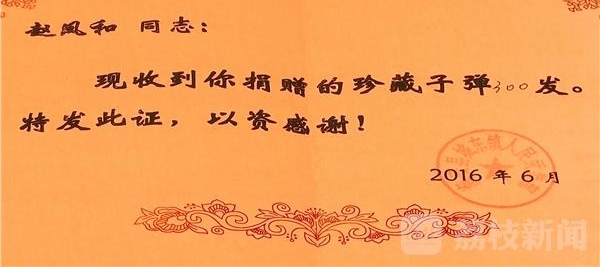 赵凤和 同志:
现收到你捐赠的珍藏子弹300发。
特发此证,以资感谢!
2016 年 6 月
荔枝新闻